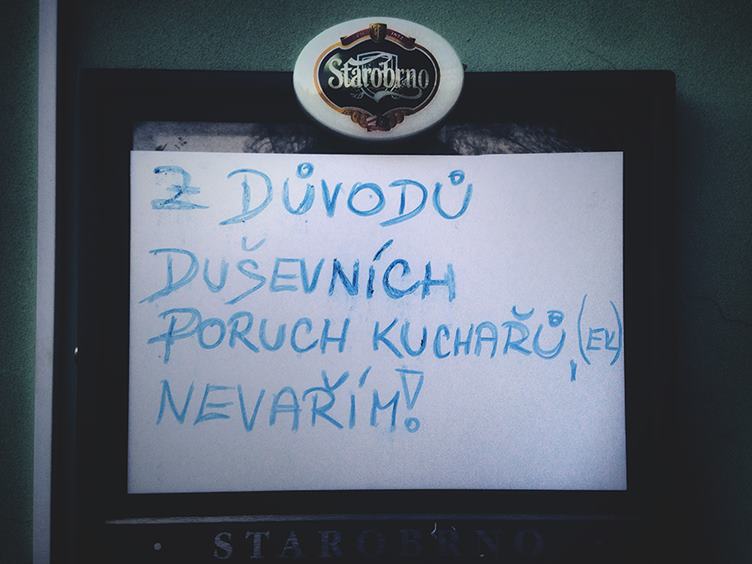 Starobrno
Z DŮVODŮ
DUŠEVNÍCH
PORUCH KUCHAŘŮ, (EK)
NEVAŘÍM!
• STAROBRNO •